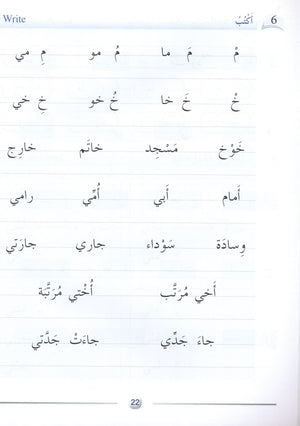 6 أَكْتُبُ Write
مْ مَ ما مُ مو مِ مي
خْ خَ خا خُ خو خِ خي
خَوْخ مَسْجِد خاتَم خارِج
أَمام أَبي أُمِّي رامي
وِسادَة سَوْداء جاري جارَتي
أَخي مُرَتَّب أُخْتي مُرَتَّبَة
جاءَ جَدِّي جاءَتْ جَدَّتي
22